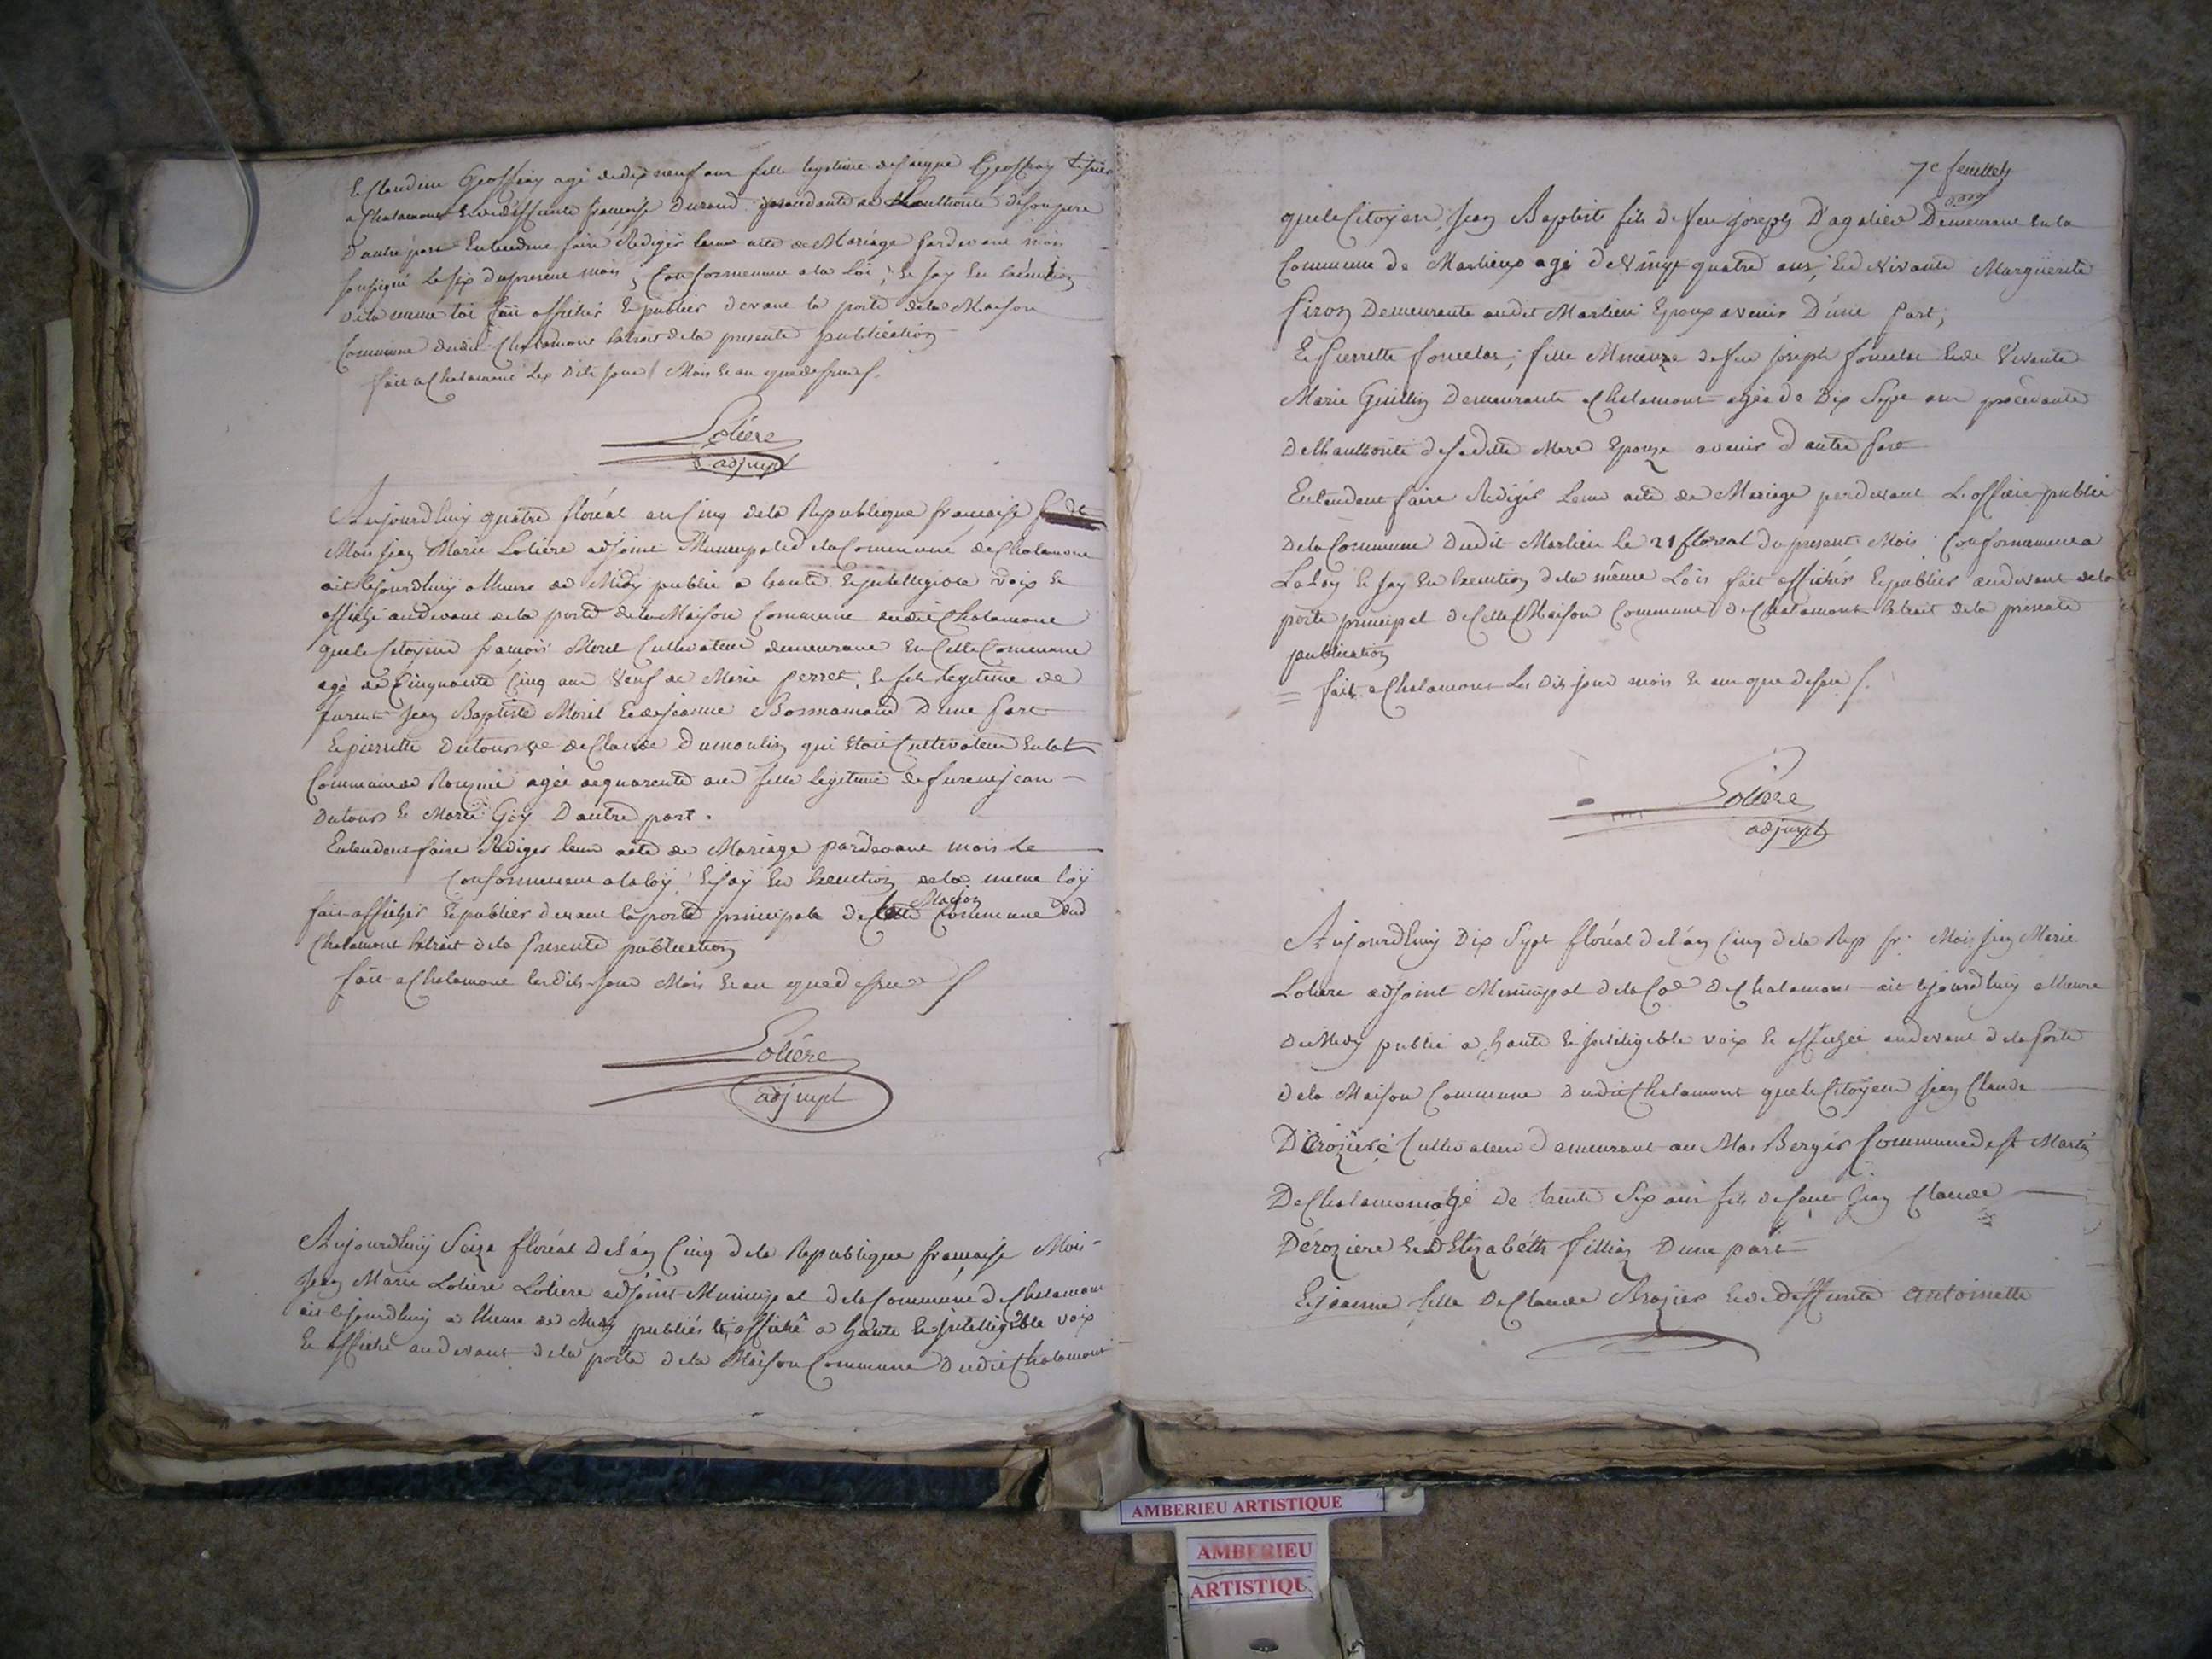 Et Claudine Geoffray agé de dix neuf ans fille legitime de Jacque Geoffray
a Chalamont et de deffunte francoise Durand procedante de Lauthorité de son pere
D'autre part Entendent faire Rediger leur acte de Mariage pardevant moi
soussigné le six du present mois, Conformement a la Loi, et jay En Execution
de la meme loi fait afficher Et publier devant la porte de la Maison
Commune dudit Chalamont Extrait de la presente publication
fait a Chalamont les Dits jour Mois et an que dessus
Loliere
adj mpl
Aujourdhuy quatre floréal an Cinq de la Republique francaise
Moi Jean Marie Loliere adjoint Municipal de la Commune de Chalamont
ait cejourdhuy a lheure de Midy publié a haute Et intelligible voix Et
affiché au devant de la porte de la Maison Commune dudit Chalamont
que le Citoyen francois Morel Cultivateur demeurant En Cette Commune
agé de Cinquante Cinq ans Veuf de Marie perret, Et fils legitime de
furent Jean Baptiste Morel Et de jeanne Bonnamand D'une part
Et pierrette Dutour ve de Claude Dumoulin qui Etoit Cultivateur En la
Commune de agée de quarente ans fille legitime de furent jean
Dutour Et Marie Goy D'autre part.
Entendent faire Rediger leur acte de Mariage pardevant moi le
Conformement a la loy, Et jay En Execution de la meme loy
fait afficher Et publier devant la porte principale de Maison Commune dud
Chalamont Extrait de la presente publication
fait a Chalamont les dits jour Mois Et an que dessus
Loliere
adj mpl
Aujourdhuy Seize floréal de l'an Cinq de la Republique francaise Moi
Jean Marie Loliere Loliere adjoint Municipal de la Commune de Chalamont
ait cejourdhuy a lheure de Midy publiér affiché a haute Et intelligible voix
Et affiché au devant de la porte de la Maison Commune Dudit Chalamont
7e feuillet
que le Citoyen Jean Baptiste fils de feu joseph D'agalier Demeurant En la
Commune de Marlieux agé de Vingt quatre ans, Et de Vivante Margüerite
Demeurante audit Marlieu Epoux avenir D'une part,
Et pierrette fille Mineure de feu joseph Et de Vivante
Marie Guillin Demeurante a Chalamont agée de Dix Sept ans procedante
De lauthorité de saditte Mere Epouze avenir d'autre part
Entendent faire Rediger Leur acte de Mariage pardevant L'officier public
De la Commune Dudit Marlieu le 21 floreal du present Mois Conformement a
La Loy Et jay En Execution de la même Loi fait afficher Et publier au devant de la
porte principal de Cette Maison Commune de Chalamont Extrait de la presente
publication
= fait a Chalamont Les Dits jour mois Et an que dessus
Loliere
adj mpl
Aujourdhuy Dix Sept floréal de l'an Cinq de la Rep fr. Moi Jean Marie
Loliere adjoint Municipal de la Coe De Chalamont ait cejourdhuy a lheure
De Midy publié a haute Et intelligible voix Et affiché au devant de la porte
De la Maison Commune Dudit Chalamont que le Citoyen Jean Claude
Déroziere Cultivateur Demeurant au Mas Berger Commune de St Martin
De Chalamont agé De trente Six ans fils de feut Jean Claude
Déroziere Et D'Elizabéth fillion D'une part
Et jeanne fille De Claude Brozier Et de deffunte Antoinette
AMBERIEU ARTISTIQUE
AMBERIEU
ARTISTIQU